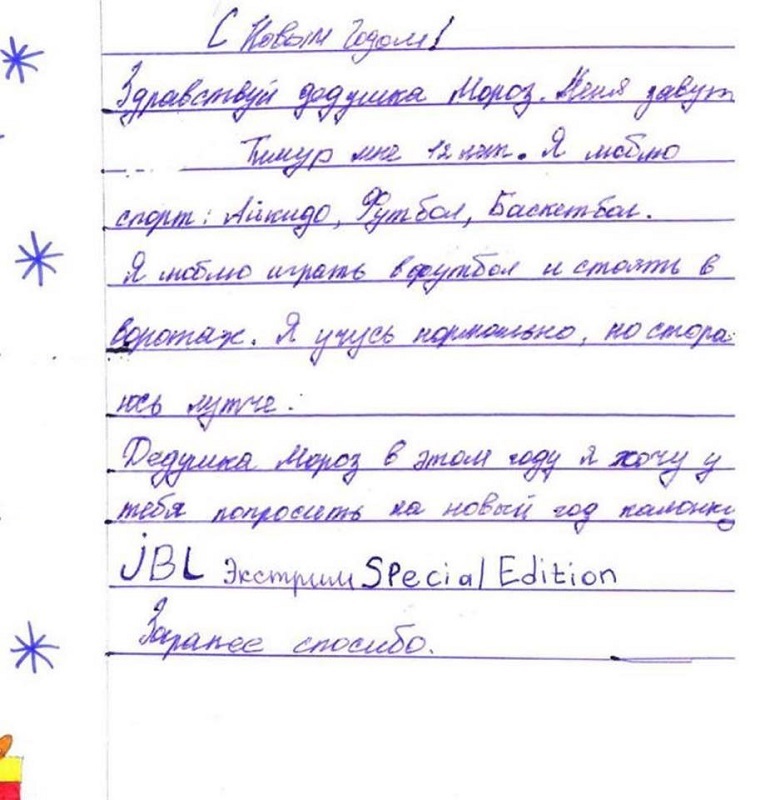 С Новым Годом!
Здравствуй дедушка Мороз. Меня завут
Тимур мне 12 лет. Я люблю
спорт: Айкидо, Футбол, Баскетбол.
Я люблю играть в футбол и стоять в
воротах. Я учусь нормально, но стора
юсь лутче.
Дедушка Мороз в этом году я хочу у
тебя попросить на новый год калонку
JBL Экстрим Special Edition
Заранее спосибо.